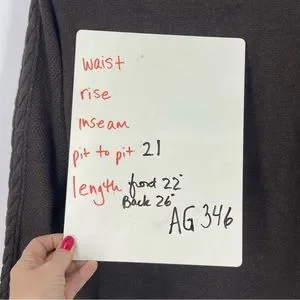 waist
rise
inseam
pit to pit 21
length front 22"
Back 26"
AG 346